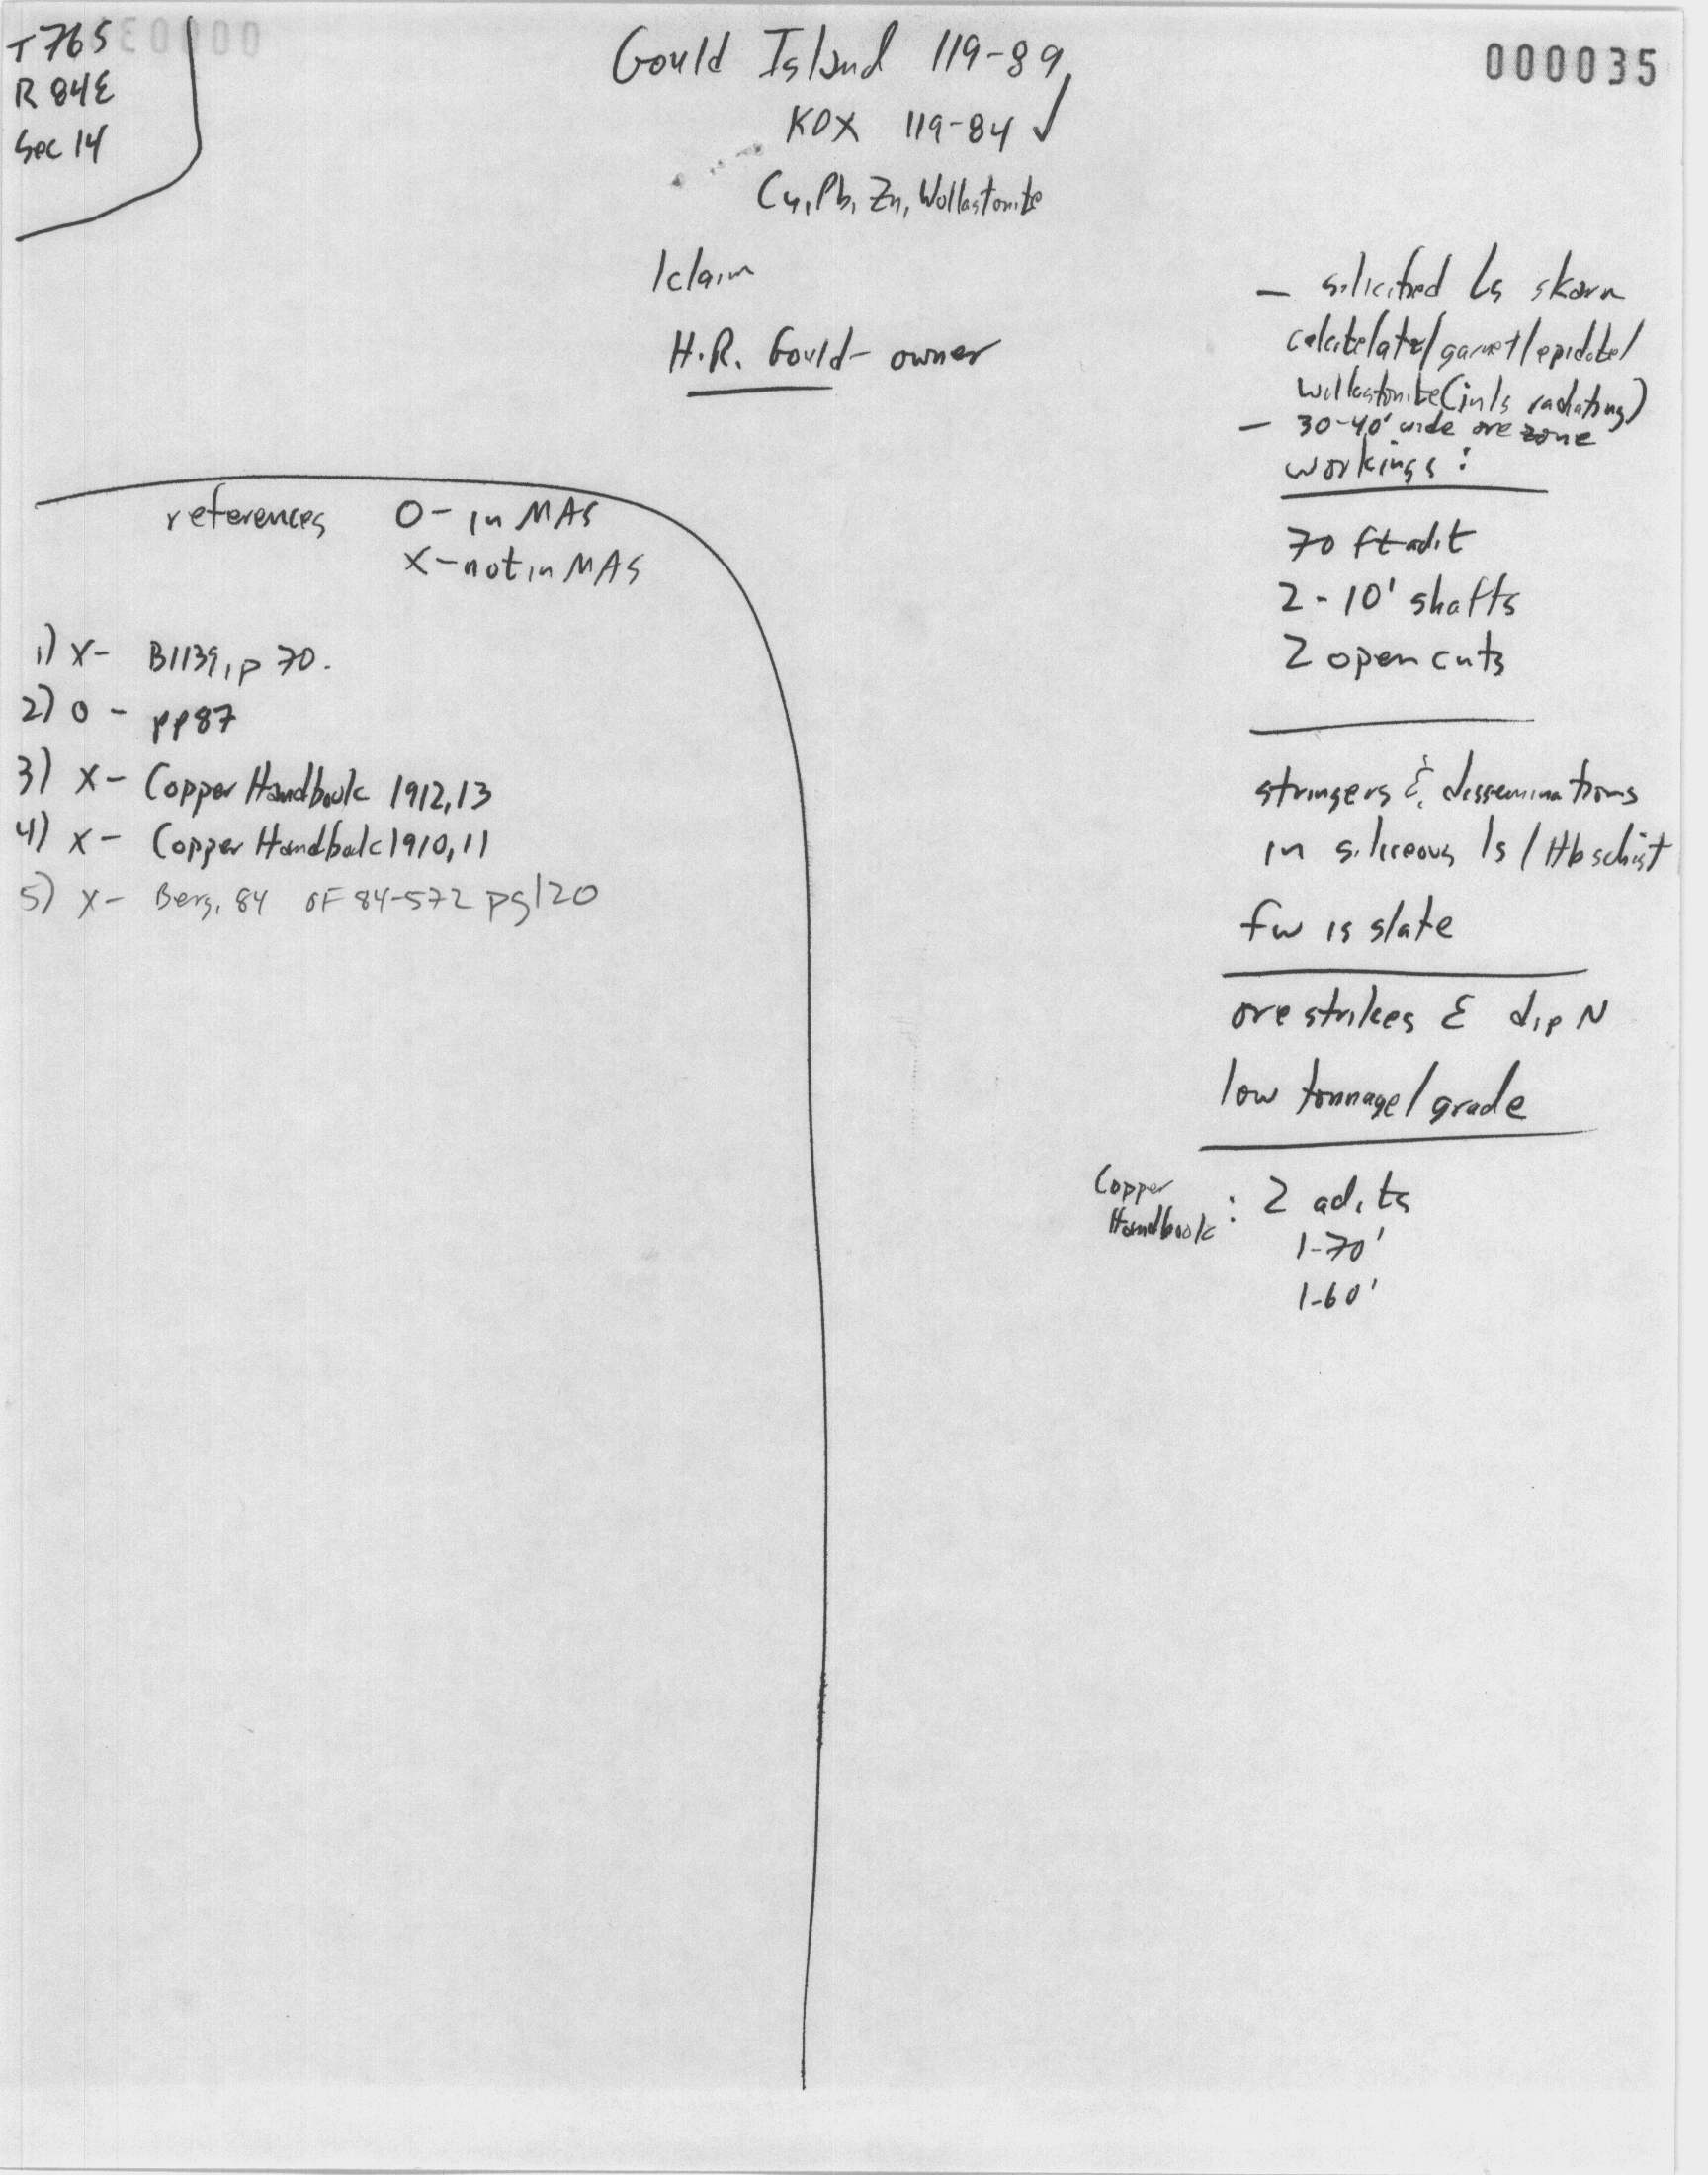 T 76S
R 84E
Sec 14
Gould Island 119-89
KOX 119-84 ✓
Cu, Pb, Zn, Wollastonite
1 claim
H.R. Gould - owner
000035
- silicified Ls skarn
calcite/qtz/garnet/epidote/
wollastonite (in ls radiating)
- 30-40' wide ore zone
workings:
70 ft adit
2 - 10' shafts
2 open cuts
stringers & disseminations
in siliceous ls / Hb schist
fw is slate
ore strikes E dip N
low tonnage/grade
Copper
Handbook : 2 adits
1-70'
1-60'
references O - in MAS
X - not in MAS
1) X - B1139, p 70.
2) O - pp87
3) X - Copper Handbook 1912,13
4) X - Copper Handbook 1910,11
5) X - Berg, 84 OF 84-572 pg 120